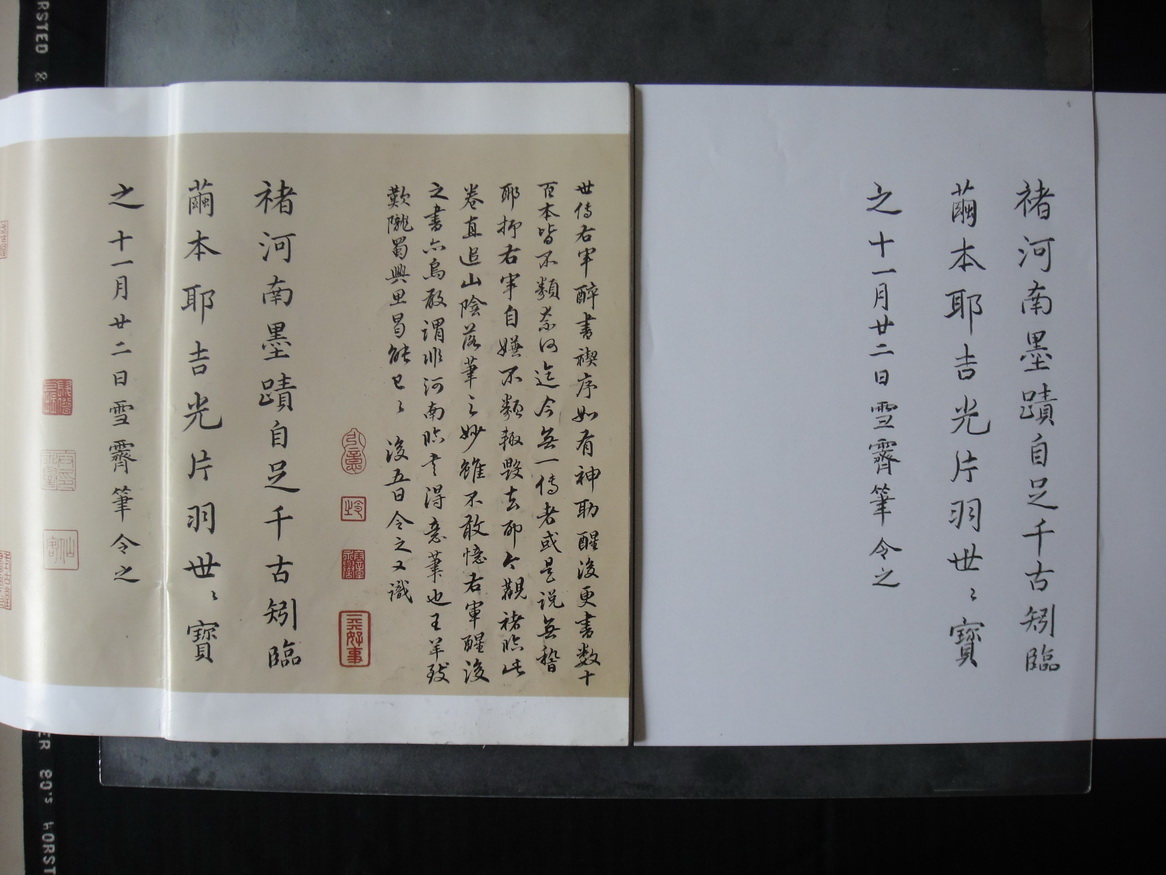 褚河南墨蹟自足千古矧臨
繭本耶吉光片羽世〻寶
之十一月廿二日雪霽筆令之
世傳右軍醉書禊序如有神助醒後更書數十
百本皆不類奈何迄今無一傳者或是說無稽
耶抑右軍自嫌不類輙毀去耶今觀褚臨此
卷直追山陰落筆之妙雖不敢憶右軍醒後
之書亦烏敢謂非河南臨章得意筆也王羊致
歎隴蜀興思曷能已〻 後五日令之又識
三希好事
褚河南墨蹟自足千古矧臨
繭本耶吉光片羽世〻寶
之十一月廿二日雪霽筆令之